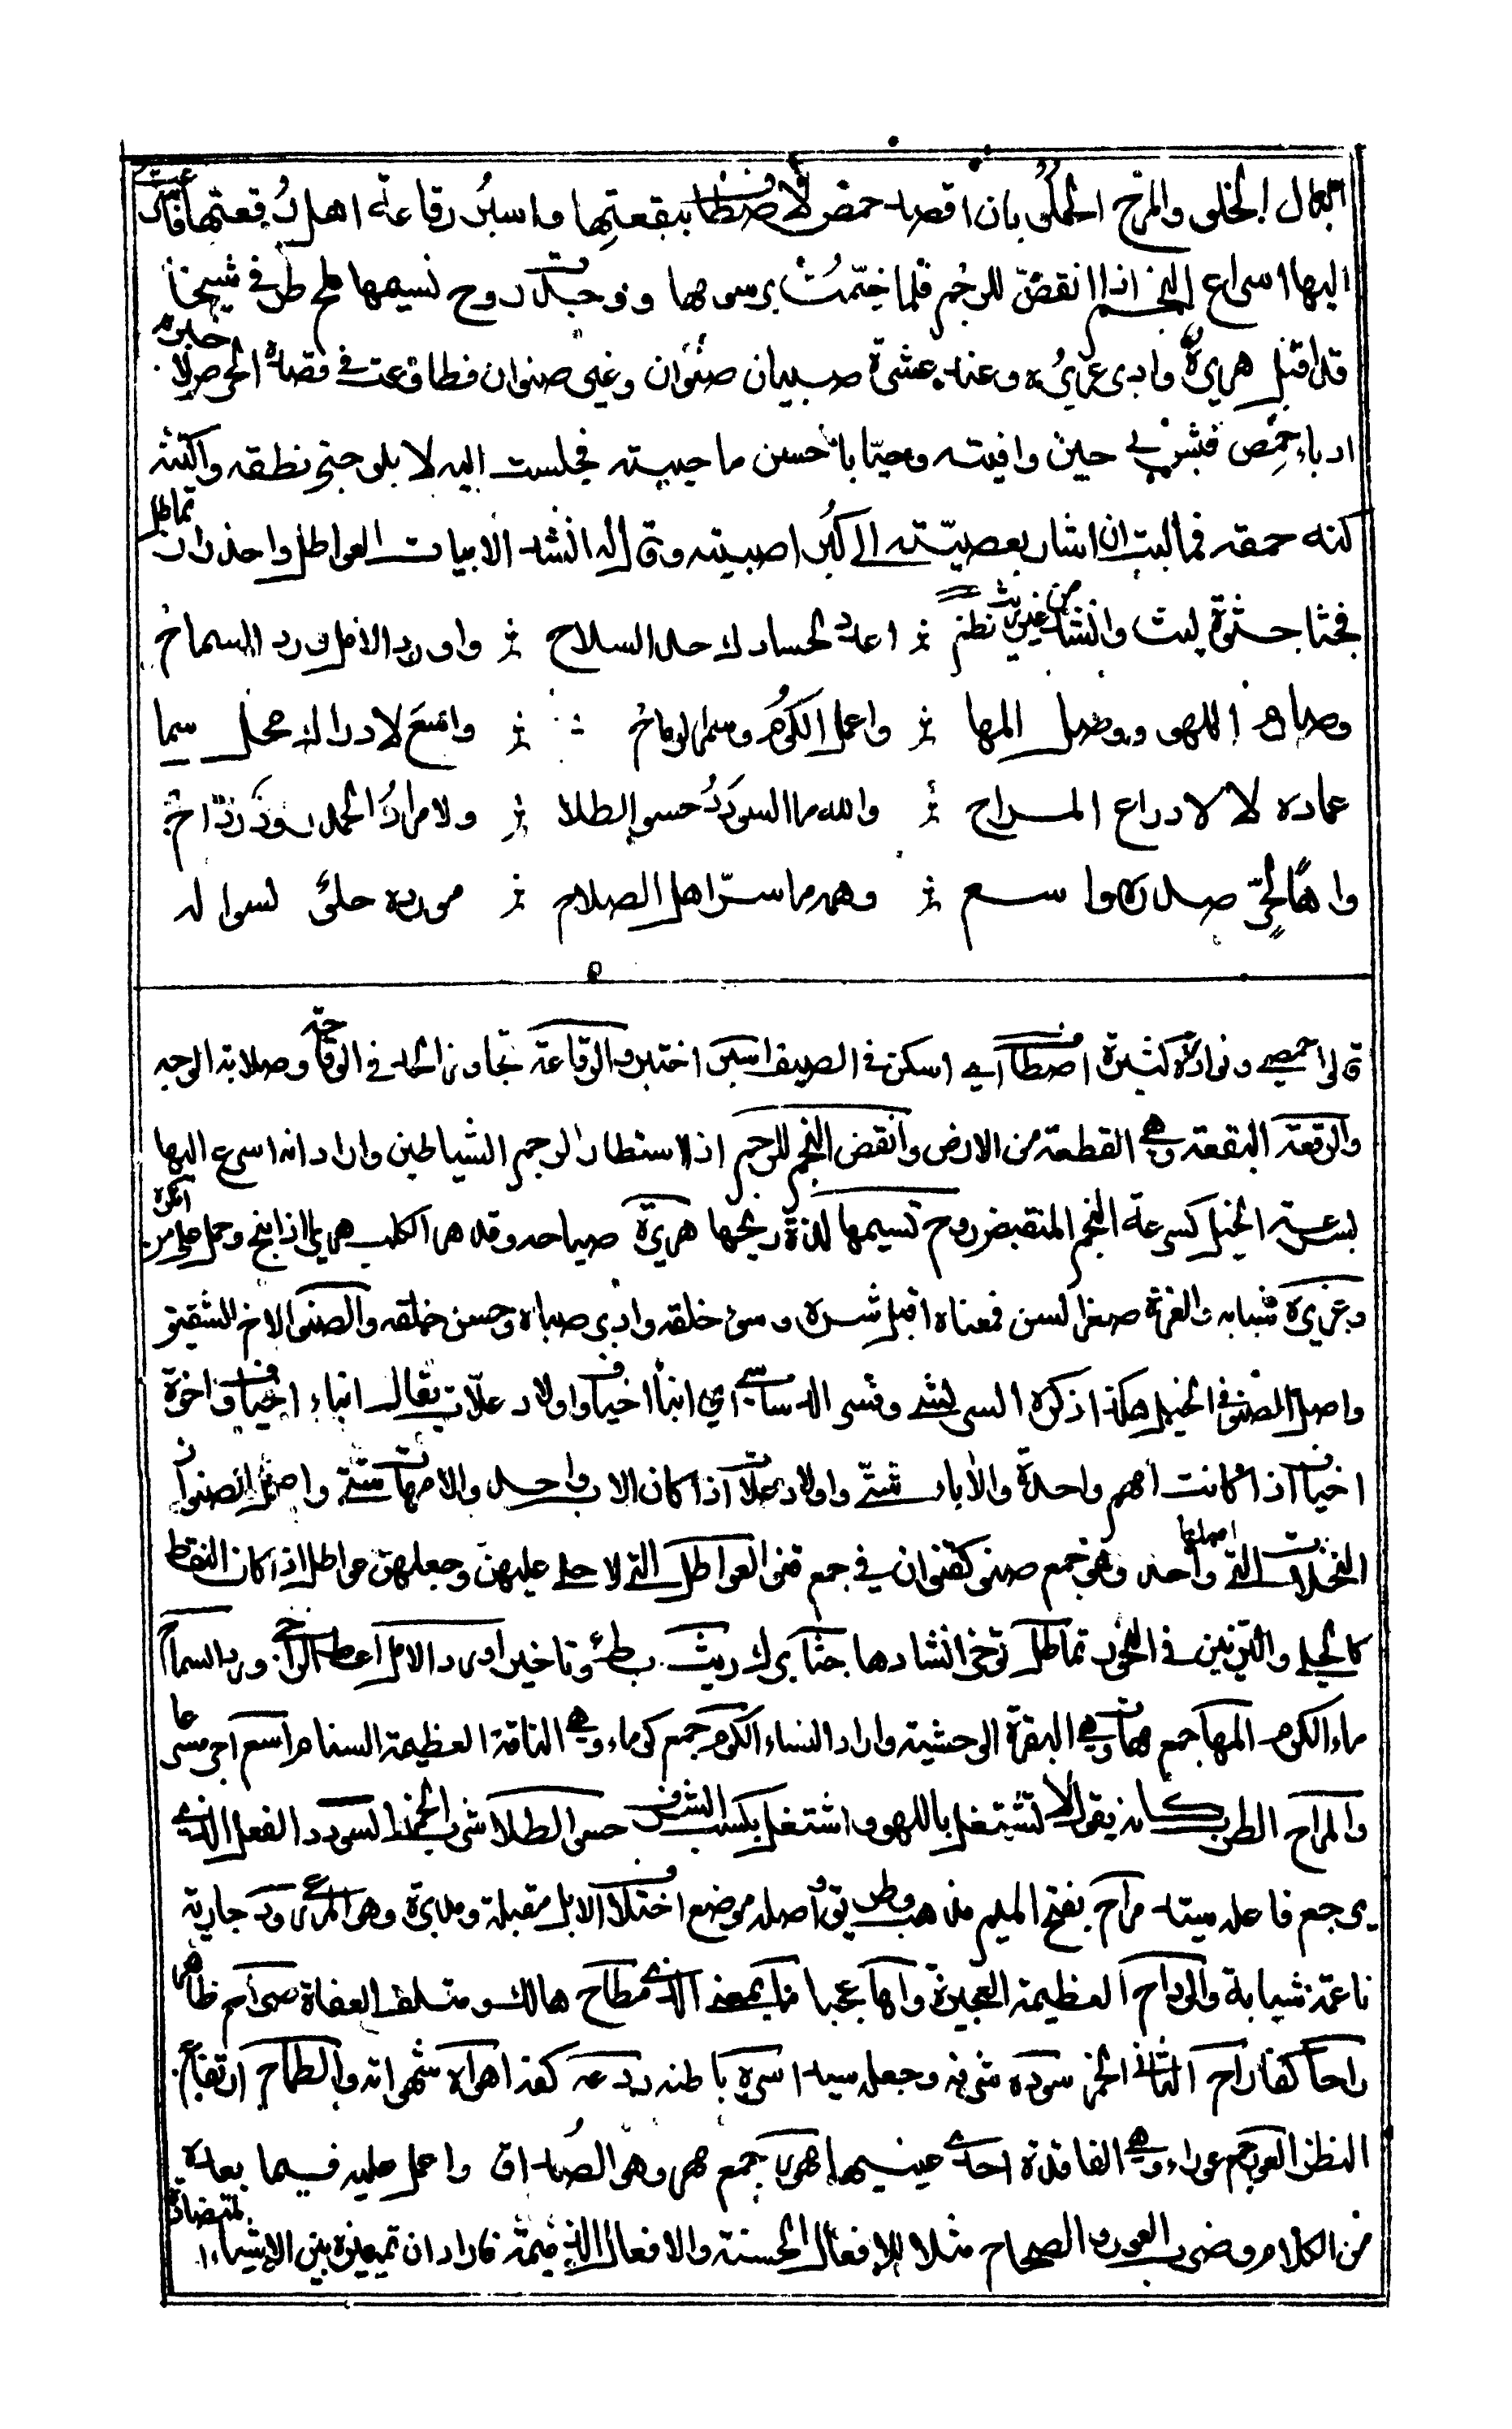 الخلو والمرح الحلو بان اقصد حمص لاصطاف ببقعتها واسبر رقاعة اهل رقعتها فاسرعت
اليها اسراع النجم اذا انقض للرجم فلما خيمت برسومها ووجدت روح نسيمها لمح طرفي شيخا
قد اقبل هريره وادبر غريره وعنده عشرة صبيان صنوان وغير صنوان فطاوعت في قصده الحرص لاخبر به
ادباء حمص فبش بي حين وافيته وحيا باحسن مما حييته فجلست اليه لابلو جنى نطقه واكتنه
كنه حمقه فما لبث ان اشار بعصيته الى كبر اصيبيته وقال له انشد الابيات العواطل واحذر ان تماطل
فجثا جثوة ليث وانشد من غير ريث نظم اعدد لحسادك حد السلاح واورد الامل ورد السماح
وصارم اللهو ووصل المها واعمل الكوم وسمر الرماح واسع لادراك محل سما
عماده لا لادراع المراح والله ما السودد حسو الطلا ولا مراد الحمد رود رداح
واها لحر صدره واسع وهمه ما سر اهل الصلاح مورده حلو لسواله
قال احمصي ونوادره كثيرة اصطاف اي اسكن في الصيف اسبر اختبر والرقاعة تجاوز الحد في الوقاحة وصلابة الوجه
والرقعة البقعة وهي القطعة من الارض وانقض النجم للرجم اذا استطار لرجم الشياطين واراد انه اسرع اليها
بسرعة الخيل كسرعة النجم المنقض روح نسيمها لذة ريحها هريره صياحه وقد هر الكلب هريرا اذا نبح وحمل على من انكره
وغريره شبابه والغرة صغر السن فمعناه اقبل شره وسوء خلقه وادبر صباه وحسن خلقه والصنو الاخ الشقيق
واصل الصنو في النخيل هكذا ذكره الشريشي وفسر ابناء اخياف واولاد علات يقال ابناء اخياف واخوة
اخياف اذا كانت امهم واحدة والاباء شتى واولاد علات اذا كان الاب واحد والامهات شتى واصل الصنوان
النخلات التي اصلها واحد وهو جمع صنو كقنوان في جمع قنو العواطل التي لا حلي عليهن وجعلهن عواطل اذ كان النقط
كالحلي والتزيين في الحروف تماطل توخر انشادها جثا برك ريث بطء وتاخير اورد الامل اعط الراجي ورد السماح
ماء الكرم المها جمع مهاة وهي البقرة الوحشية واراد النساء الكوم جمع كوماء وهي الناقة العظيمة السنام اسع اجر مسرعا
والمراح الطرب كانه يقول لا تشتغل باللهو واشتغل بكسب الشرف حسو الطلا شرب الخمر السودد الفعل الذي
يرجع فاعله سيدا مراح بفتح الميم مذهب وطريق واصله موضع اختلاف الابل مقبلة ومدبرة وهو المرعى رود جارية
ناعمة شابة والرداح العظيمة العجيزة واها عجبا ما بمعنى الذي مطاح هالك ومتلف العفاة صراح ظاهر
راحا كفا راح الثاني الخمر سوده شرفه وجعله سيدا سره باطنه ردعه كفه اهواه شهواته والطماح ارتفاع
النظر العور جمع عوراء وهي الفاقدة احدى عينيها مهور جمع مهر وهو الصداق واعمل عليه فيما بعده
من الكلام وضرب العور والصحاح مثلا للافعال الحسنة والافعال الذميمة فاراد ان تمييزه بين الاشياء المتضادة